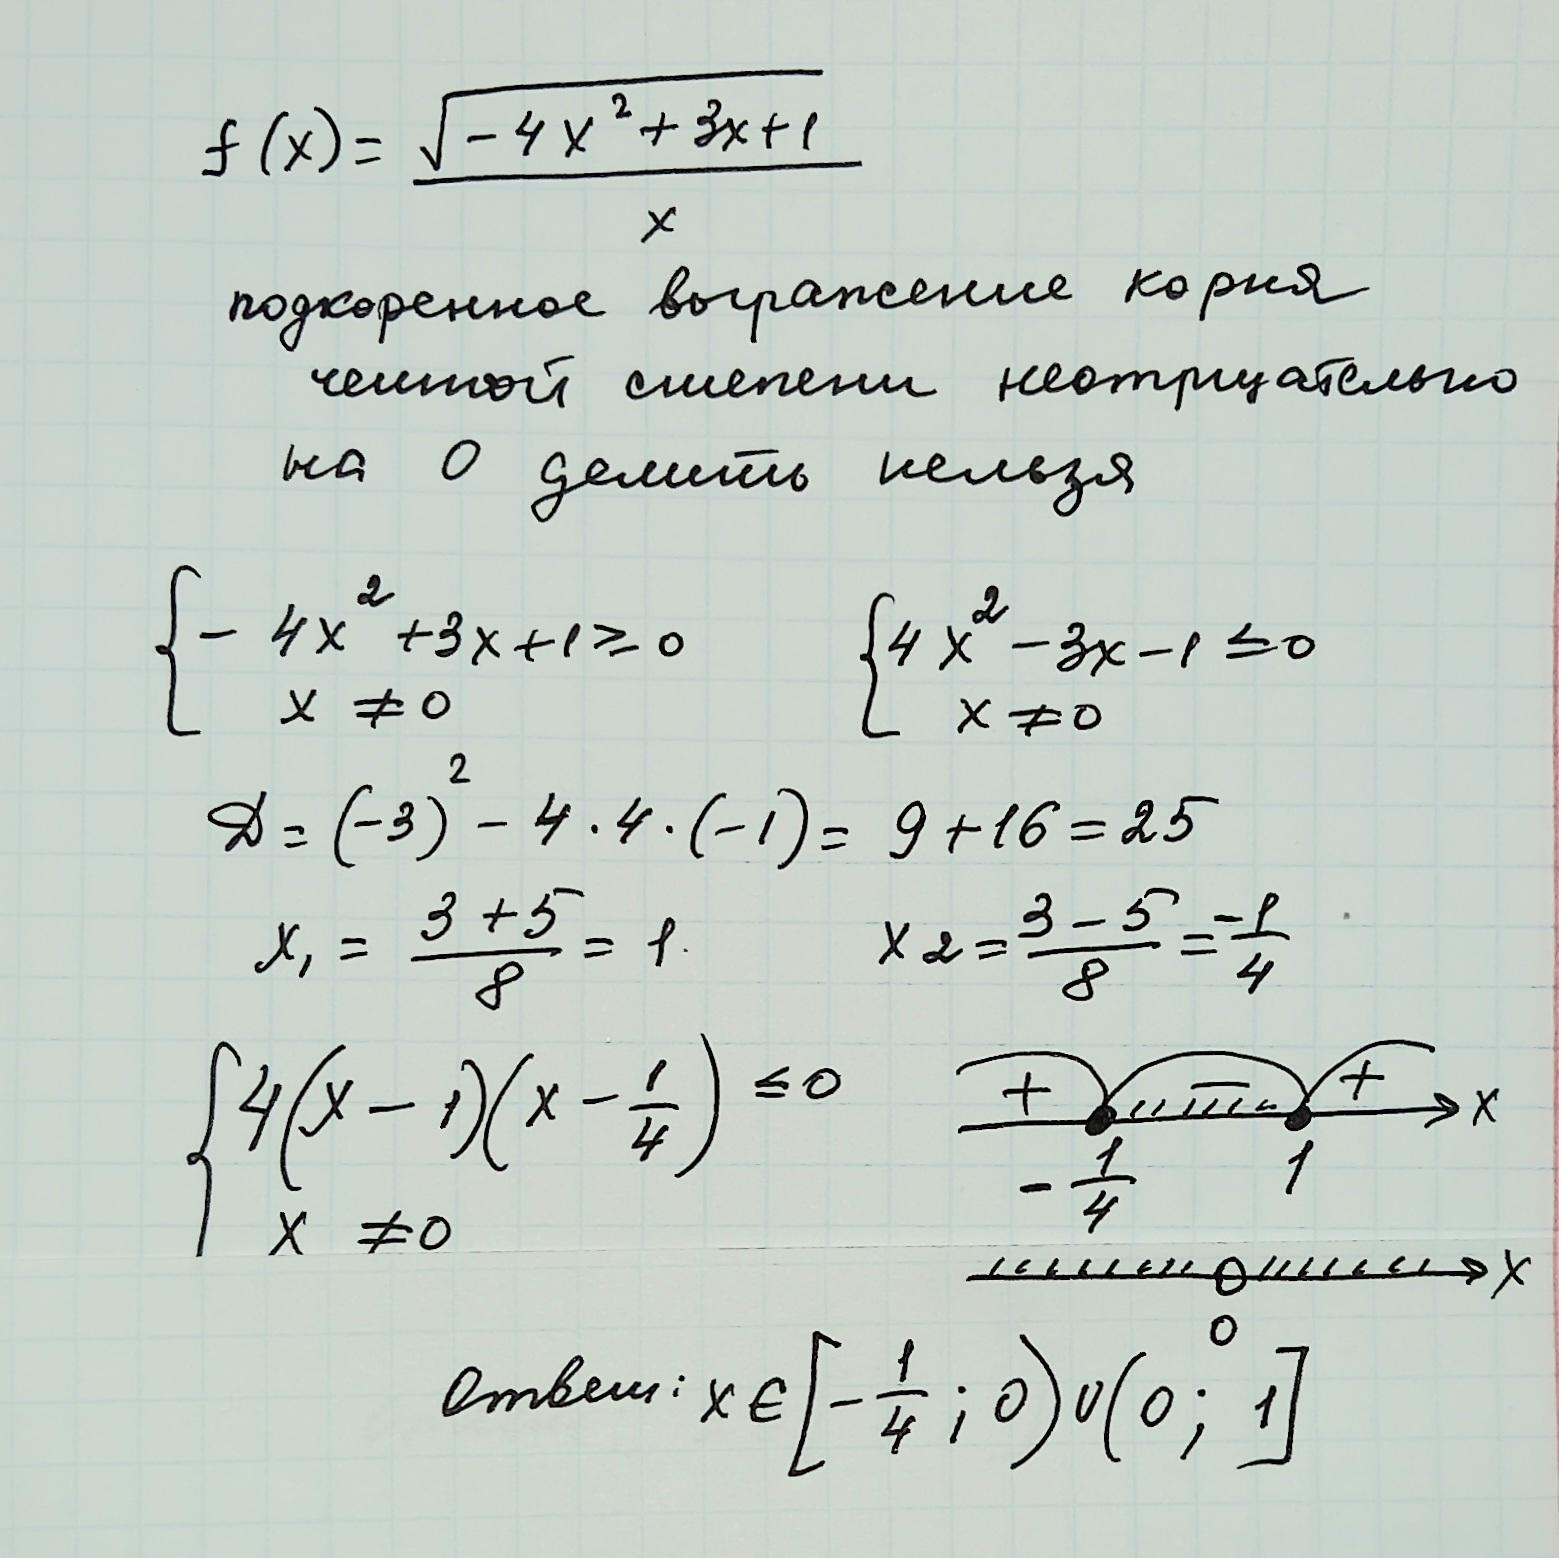 f(x) = √(-4x² + 3x + 1) / x
подкоренное выражение корня
четной степени неотрицательно
на 0 делить нельзя
{ - 4x² + 3x + 1 ≥ 0 { 4x² - 3x - 1 ≤ 0
x ≠ 0 x ≠ 0
D = (-3)² - 4 · 4 · (-1) = 9 + 16 = 25
x₁ = (3 + 5)/8 = 1. x₂ = (3 - 5)/8 = -1/4
{ 4(x - 1)(x - 1/4) ≤ 0
x ≠ 0
+ - + x
- 1/4 1
x
0
Ответ: x ∈ [- 1/4 ; 0) ∪ (0 ; 1]